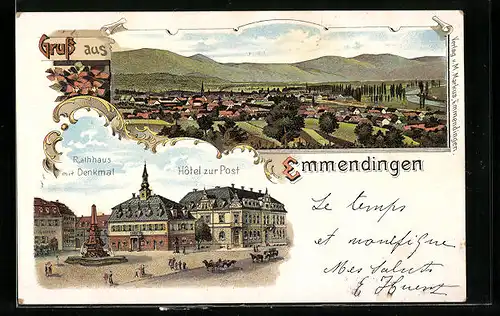 Gruß aus
Emmendingen
Verlag v. M. Markus, Emmendingen.
Rathhaus
mit Denkmal
Hôtel zur Post
Le temps
et
Mes saluts